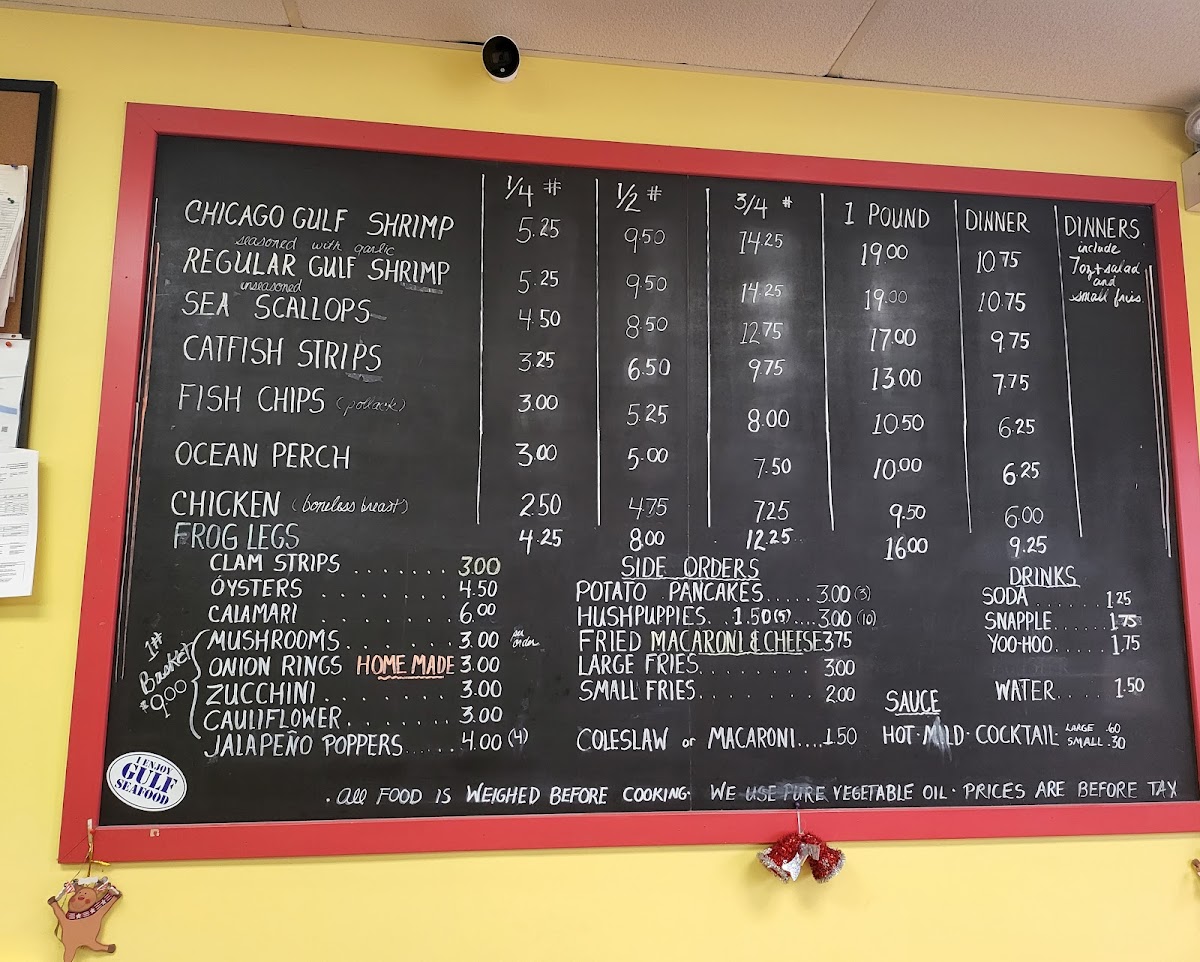 1/4 # 1/2 # 3/4 # 1 POUND DINNER DINNERS
include
7oz + salad
and
small fries
CHICAGO GULF SHRIMP 5.25 9.50 14.25 19.00 10.75
seasoned with garlic
REGULAR GULF SHRIMP 5.25 9.50 14.25 19.00 10.75
unseasoned
SEA SCALLOPS 4.50 8.50 12.75 17.00 9.75
CATFISH STRIPS 3.25 6.50 9.75 13.00 7.75
FISH CHIPS (pollack) 3.00 5.25 8.00 10.50 6.25
OCEAN PERCH 3.00 5.00 7.50 10.00 6.25
CHICKEN (boneless breast) 2.50 4.75 7.25 9.50 6.00
FROG LEGS 4.25 8.00 12.25 16.00 9.25
CLAM STRIPS ....... 3.00
OYSTERS ........ 4.50
CALAMARI ........ 6.00
MUSHROOMS ....... 3.00 per order
ONION RINGS HOME MADE 3.00
ZUCCHINI ........ 3.00
CAULIFLOWER ....... 3.00
JALAPEÑO POPPERS ..... 4.00 (4)
1#
Basket
$9.00
SIDE ORDERS
POTATO PANCAKES..... 3.00 (3)
HUSHPUPPIES. 1.50(5).... 3.00 (10)
FRIED MACARONI & CHEESE 3.75
LARGE FRIES........ 3.00
SMALL FRIES........ 2.00
COLESLAW or MACARONI....1.50
DRINKS
SODA ....... 1.25
SNAPPLE ...... 1.75
YOO-HOO ..... 1.75
WATER..... 1.50
SAUCE
HOT·MILD·COCKTAIL LARGE .60
SMALL .30
I ENJOY
GULF
SEAFOOD
·All FOOD IS WEIGHED BEFORE COOKING· WE USE PURE VEGETABLE OIL· PRICES ARE BEFORE TAX